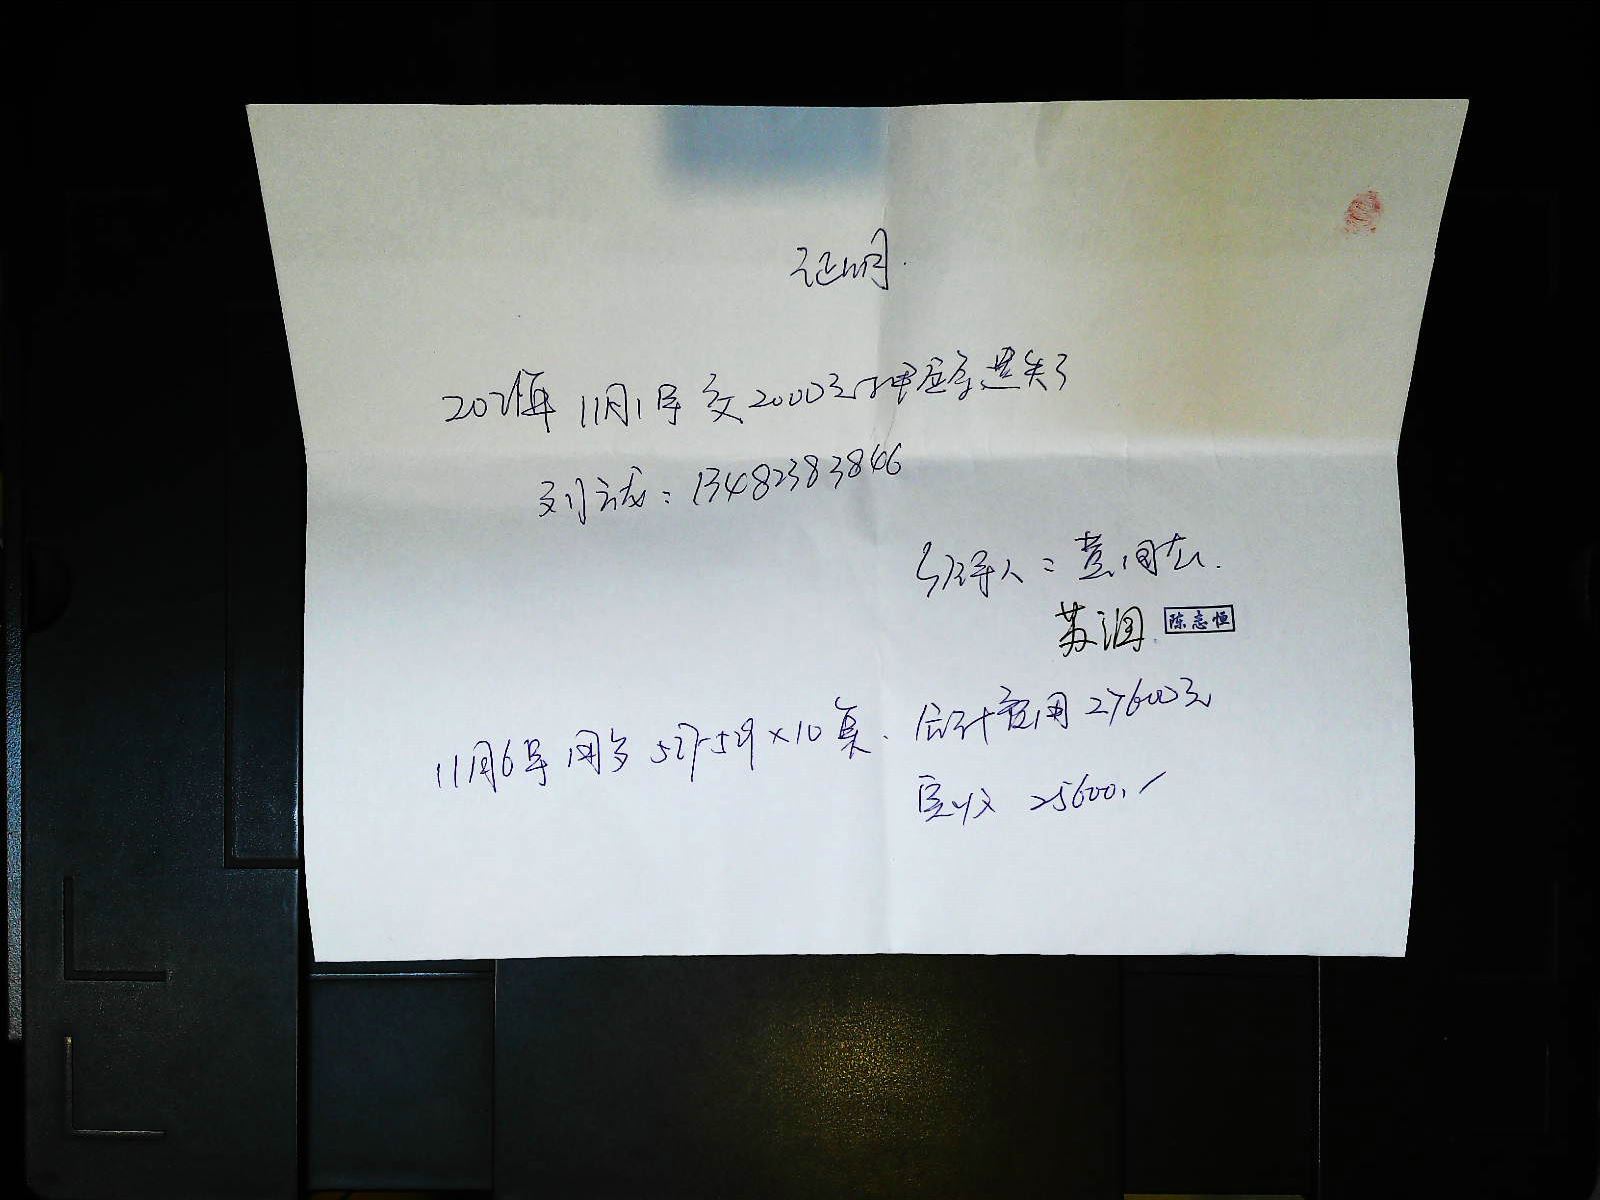 证明.
2021年11月1号交2000元押金单遗失了
刘诚：13482383846
经手人：黄国宏.
苏润 陈志恒
11月6号 用 527-529×10 合计费用 27600元
实收 25600.